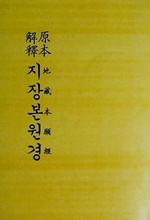 原本
解釋
지장본원경
地藏本願經